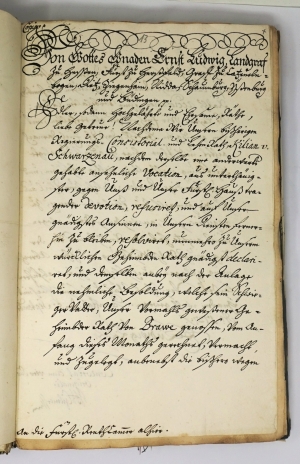 Copia
Von Gottes Gnaden Ernst Ludwig, Landgraf
zu Hessen, Fürst zu Hersfeld, Graf zu Catzenelen-
bogen, Dietz, Ziegenhain, Nidda, Schaumburg, Ysenburg
und Büdingen p.
Edler, Hochgelahrte und Räthe,
liebe Getreue. Nachdeme Wir Unsern bißherigen
Regierungs- Consistorial und Lehn Rath Kilian v.
Schwarzenau, nachdem derselbe eine anderwerts
gehabte ansehnliche Vocation, aus unterthänig-
ster, gegen Unß und Unser Fürstl. Hauß tra-
gender devotion, refusiret, und auf Unser
gnädigstes Ansinnen, in Unsern Diensten ferner-
hin zu bleiben, resolviret, nunmehro zu Unserm
würcklichen Geheimbden Rath gnädigst declari-
ret, und demselben anbey nach der Anlage
die nehmliche Besoldung, welche sein Schwie-
ger Vatter, Unser Vormahls gewesener Ge-
heimbder Rath von Brawe genossen, von An-
fang dieses Monaths gerechnet, vermacht
und zugelegt, anbenebst die bißhero wegen
An die Fürstl. Rentkammer alhier.